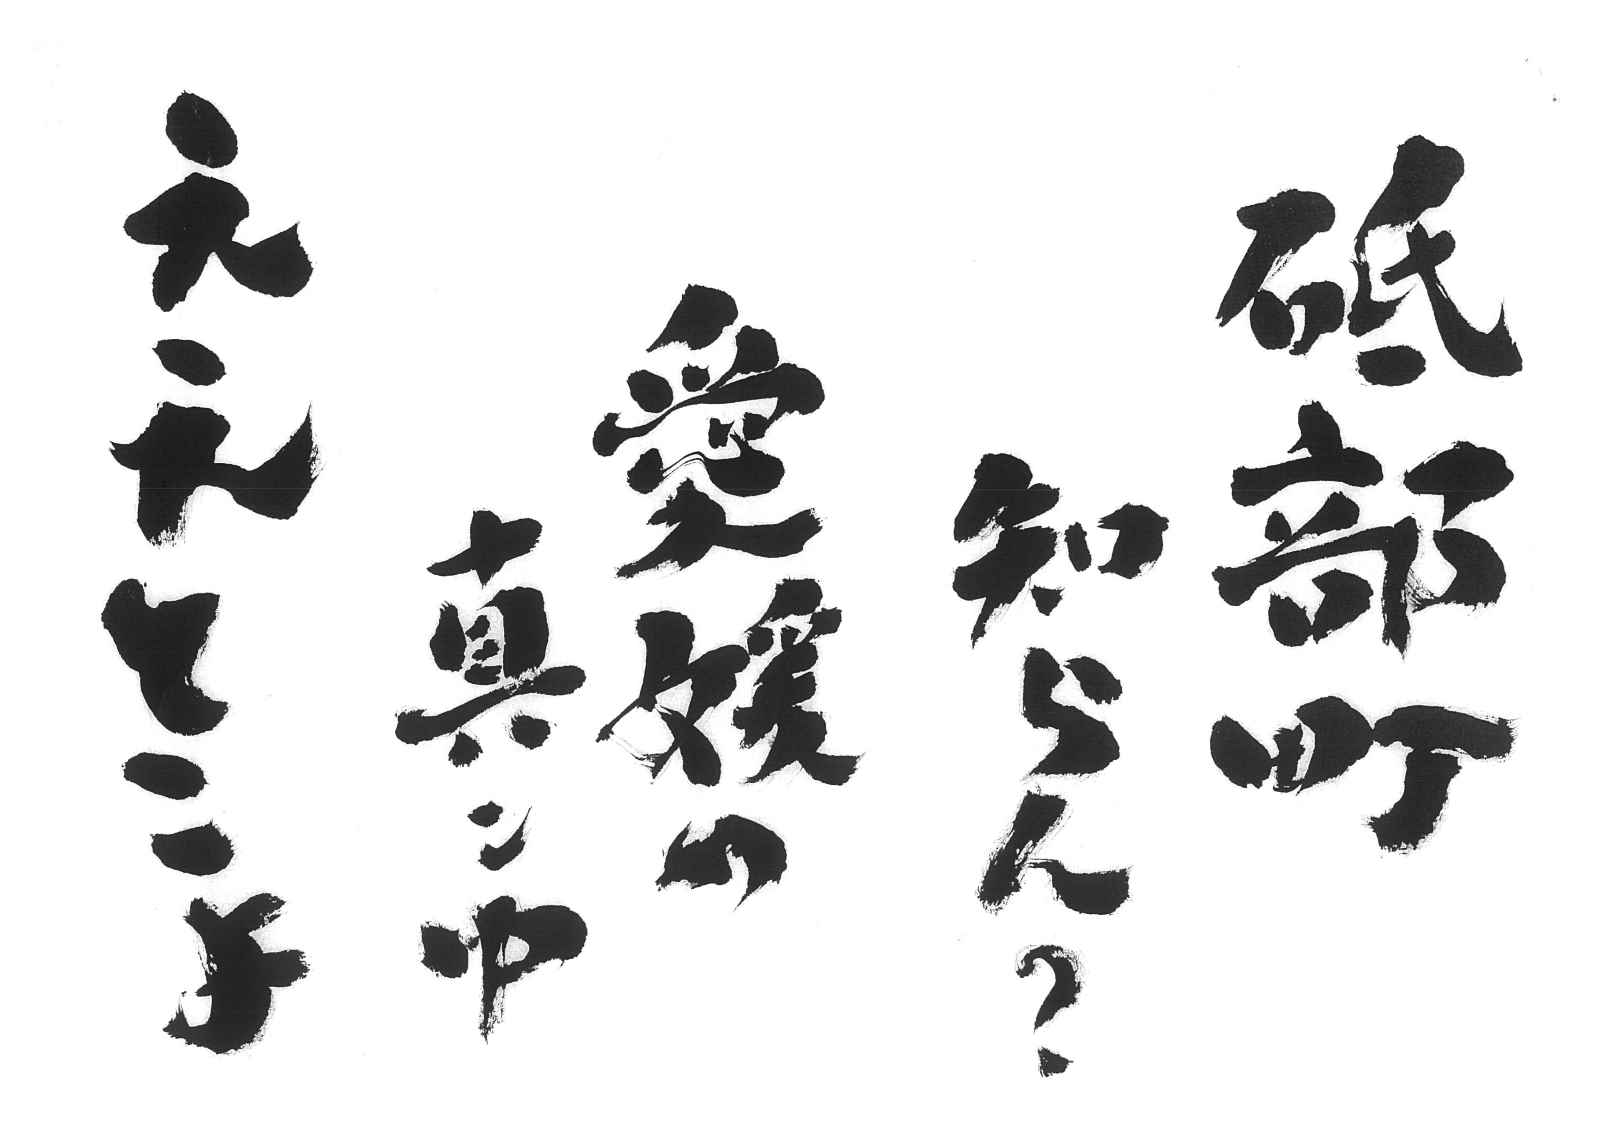 砥部町
知らん？
愛媛の
真ン中
ええとこよ